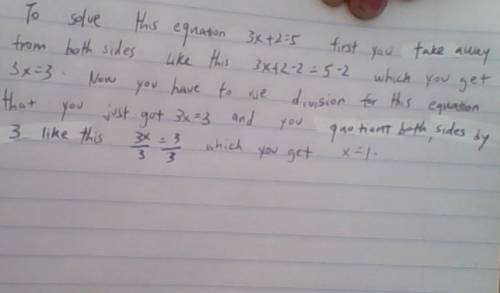 To solve this equation 3x+2=5 first you take away
from both sides like this 3x+2-2=5-2 which you get
3x=3. Now you have to use division for this equation
that you just got 3x=3 and you quotient both sides by
3 like this 3x/3 = 3/3 which you get x=1.